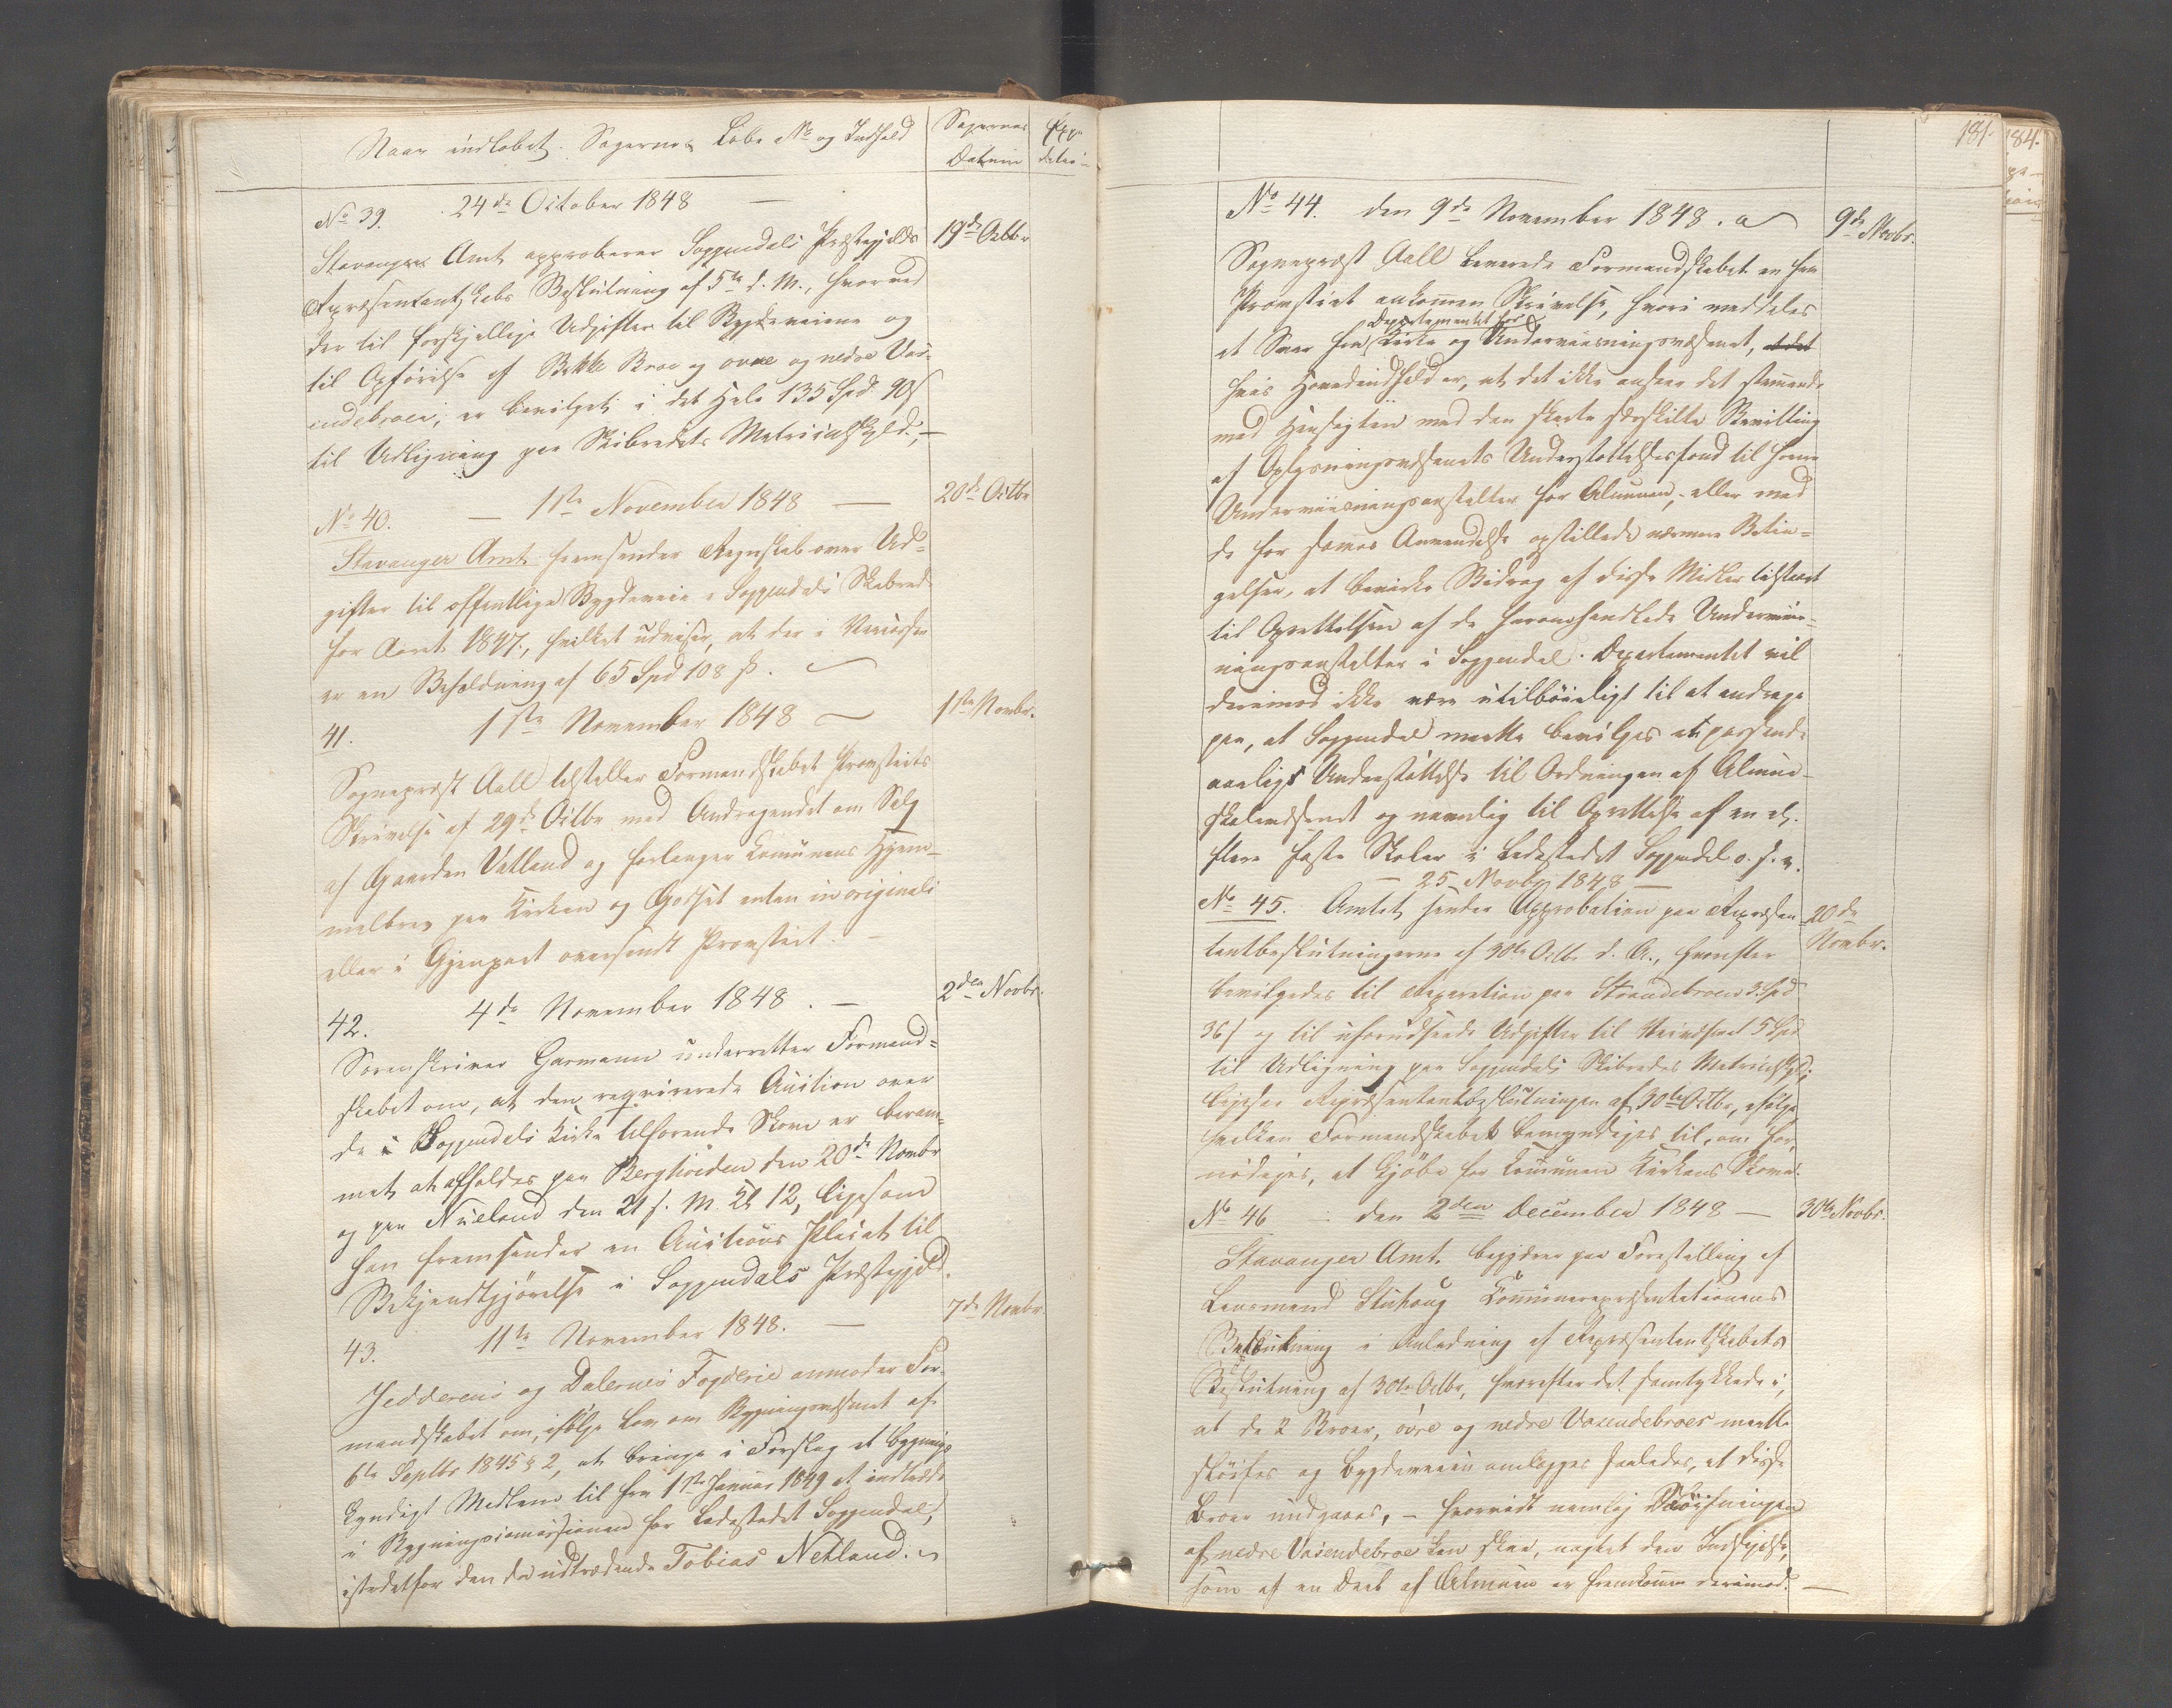 Naar indløbet. Sagernes Løbe No og Indhold
Sagernes Datum
Expedition
No 39. 24de October 1848 —
19de Octbr
Stavanger Amt approberer Soggendals Præstegjelds
Repræsentantskabs Beslutning af 5te d. M., hvorved
der til forskjellige Udgifter til Bygdeveiene og
til Opførelse af Bekke Broe og øvre og nedre Vas-
endebroer, er bevilget i det Hele 135 Spd 90 s
til Udligning paa Skibredets Matriculskyld. —
No 40. — 1ste November 1848 —
20de Octbr
Stavanger Amt fremsender Regnskab over Ud-
gifter til offentlige Bygdeveie i Soggendals Skibrede
for Aaret 1847, hvilket udviser, at der i
er en Beholdning af 65 Spd 108 s.
41. 1ste November 1848
1ste Novbr.
Sognepræst Aall tilstiller Formandskabet Provstiets
Skrivelse af 29de Octbr med Andragendet om Salg
af Gaarden Vatland og forlanger Communens Hjem-
melbrev paa Kirken og Godset enten in originali
eller i Gjenpart oversendt Provstiet. —
42. 4de November 1848. —
2den Novbr.
Sorenskriver Garmann underretter Formand-
skabet om, at den reqvirerede Auction over
de i Soggendals Kirke tilhørende Skove er beram-
met at afholdes paa Berghøiden den 20de Novbr
og paa Nueland den 21 s. M. Kl 12, ligesom
han fremsender en Auctions Placat til
Bekjendtgjørelse i Soggendals Præstegjeld.
43. 11te November 1848. —
7de Novbr
Jedderens og Dalernes Fogderie anmoder For-
mandskabet om, ifølge Lov om Bygningsvæsenet af
6te Septbr 1845 § 2, at bringe i Forslag et bygnings-
kyndigt Medlem til fra 1ste Januar 1849 at indtræde
i Bygningscommissionen for Ladestedet Soggendal,
istedetfor den da udtrædende Tobias Netland.
181.
184.
No 44. den 9de November 1848.
9de Novbr.
Sognepræst Aall leverede Formandskabet en fra
Provstiet ankommen Skrivelse, hvori meddeles
Departementet for
et Svar fra Kirke og Underviisningsvæsenet,
hvis Hovedindhold er, at det ikke ansees det stemmende
med Hensigten med den skeete særskilte Bevilling
af Oplysningsvæsenets Understøttelsesfond til høiere
Underviisningsanstalter for Almuen, eller med
de for sammes Anvendelse opstillede nærmere Betin-
gelser, at bevirke Bidrag af disse Midler tilstaaet
til Oprettelsen af de heromhandlede Underviis-
ningsanstalter i Soggendal. Departementet vil
derimod ikke være utilbøieligt til at andrage
paa, at Soggendal maatte bevilges et passende
aarligt Understøttelse til Ordningen af Almue-
skolevæsenet og navnlig til Oprettelse af en el.
flere faste Skoler i Ladestedet Soggendal o. s. v.
— 25 Novbr 1848 —
No 45. Amtet sender Approbation paa Repræsen-
20de Novbr.
tantbeslutningerne af 30te Octbr d. A., hvorefter
bevilgedes til Reparation paa Strandebroen 3 Spd
36 s og til uforudseede Udgifter til Veivæsenet 5 Spd
til Udligning paa Soggendals Skibredes Matriculskyld;
ligesaa Repræsentantbeslutningen af 30te Octbr, ifølge
hvilken Formandskabet bemyndiges til, om for-
nødiges, at kjøbe for Communen Kirkens Skove.
No 46 — den 2den December 1848 —
30te Novbr.
Stavanger Amt begjærer paa Forestilling af
Lensmand Communerepræsentationens
Beslutning i Anledning af Repræsentantskabets
Beslutning af 30te Octbr, hvorefter det samtykkede i,
at de 2 Broer, øvre og nedre Vasendebroer maatte
sløifes og Bygdeveien omlægges saaledes, at disse
Broer undgaaes, — hvorvidt nemlig Sløifningen
af nedre Vasendebroe kan skee, uagtet den Indsigelse,
som af en Deel af Almuen er fremkommen derimod. —